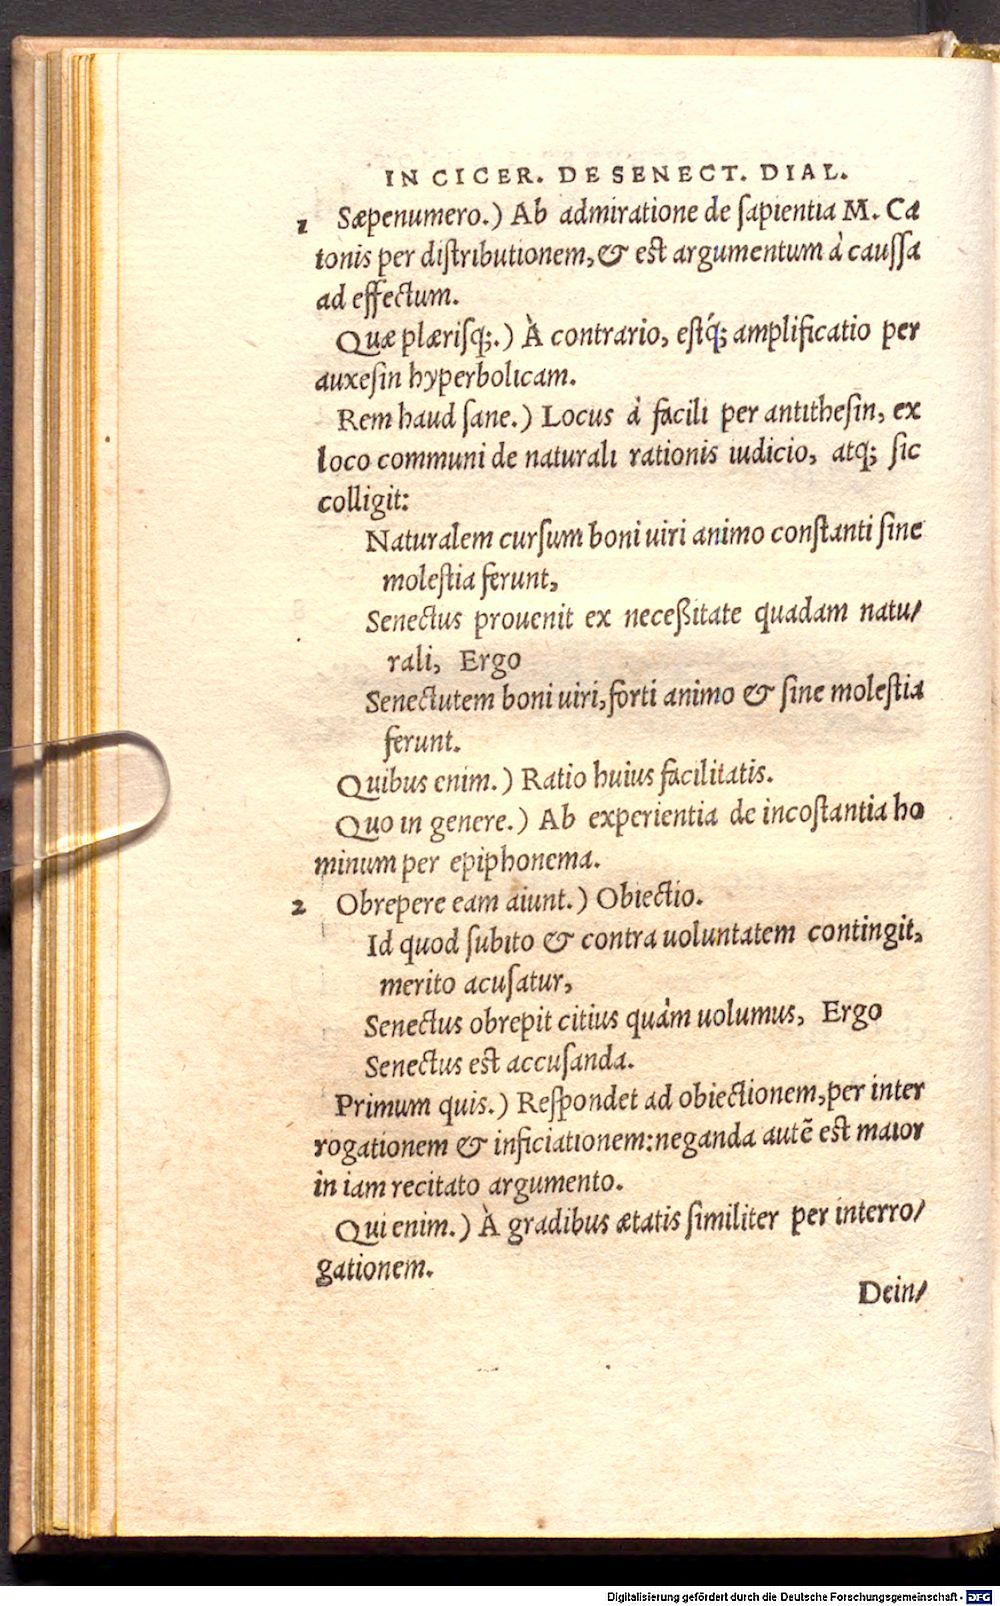 IN CICER. DE SENECT. DIAL.
1 Sæpenumero.) Ab admiratione de ſapientia M. Ca
tonis per diſtributionem, & eſt argumentum à cauſſa
ad effectum.
Quæ plæriſq́;.) À contrario, eſtq́; amplificatio per
auxeſin hyperbolicam.
Rem haud ſane.) Locus à facili per antitheſin, ex
loco communi de naturali rationis iudicio, atq; ſic
colligit:
Naturalem curſum boni uiri animo conſtanti ſine
moleſtia ferunt,
Senectus prouenit ex neceßitate quadam natu/
rali, Ergo
Senectutem boni uiri, forti animo & ſine moleſtia
ferunt.
Quibus enim.) Ratio huius facilitatis.
Quo in genere.) Ab experientia de incoſtantia ho
minum per epiphonema.
2 Obrepere eam aiunt.) Obiectio.
Id quod ſubito & contra uoluntatem contingit,
merito acuſatur,
Senectus obrepit citius quàm uolumus, Ergo
Senectus eſt accuſanda.
Primum quis.) Reſpondet ad obiectionem, per inter
rogationem & inficiationem: neganda autē eſt maior
in iam recitato argumento.
Qui enim.) À gradibus ætatis ſimiliter per interro/
gationem.
Dein/
Digitalisierung gefördert durch die Deutsche Forschungsgemeinschaft - DFG